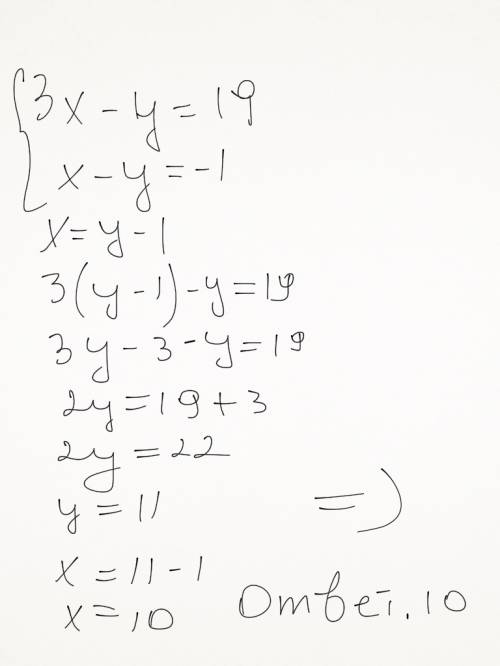 3x - y = 19
x - y = -1
x = y - 1
3(y - 1) - y = 19
3y - 3 - y = 19
2y = 19 + 3
2y = 22
y = 11
=)
x = 11 - 1
x = 10
Ответ. 10